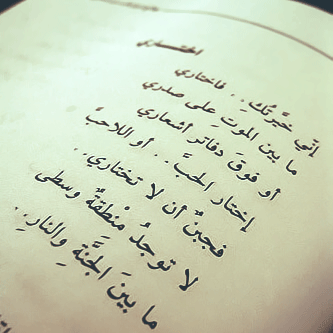 اختاري
إنّي خيّرتُكِ.. فاختاري
ما بين الموتِ على صدري
أو فوق دفاتر أشعاري
إختار الحبَّ.. أو اللاحبَّ
فجبنٌ أن لا تختاري..
لا توجدُ منْطِقَةٌ وسطى
ما بينَ الجنَّةِ والنارِ..